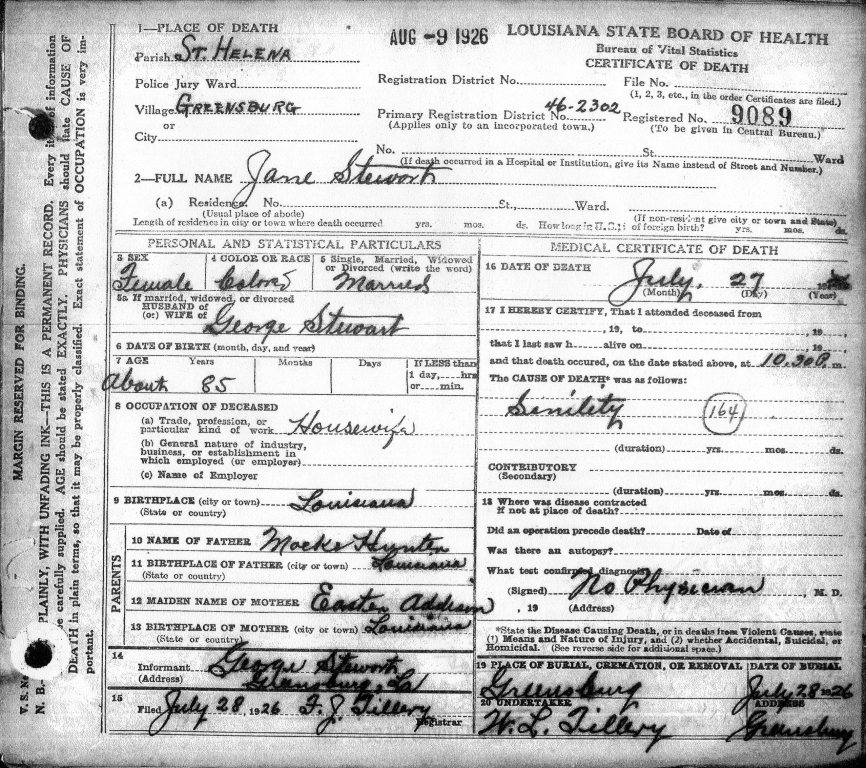 1—PLACE OF DEATH
Parish ST. HELENA
Police Jury Ward
Village GREENSBURG
or
City
AUG -9 1926
LOUISIANA STATE BOARD OF HEALTH
Bureau of Vital Statistics
CERTIFICATE OF DEATH
Registration District No.
File No.
(1, 2, 3, etc., in the order Certificates are filed.)
Primary Registration District No. 46-2302
Registered No. 9089
(Applies only to an incorporated town.)
(To be given in Central Bureau.)
No. St. Ward
(If death occurred in a Hospital or Institution, give its Name instead of Street and Number.)
2—FULL NAME Jane Stewort
(a) Residence. No. St., Ward.
(Usual place of abode)
(If non-resident give city or town and State)
Length of residence in city or town where death occurred yrs. mos. ds. How long in U.S. if of foreign birth? yrs. mos. ds.
PERSONAL AND STATISTICAL PARTICULARS
3 SEX
Female
4 COLOR OR RACE
Colored
5 Single, Married, Widowed
or Divorced (write the word)
Married
5a If married, widowed, or divorced
HUSBAND of
(or) WIFE of George Stewart
6 DATE OF BIRTH (month, day, and year)
7 AGE Years Months Days
About 85
If LESS than
1 day, hrs
or min.
8 OCCUPATION OF DECEASED
(a) Trade, profession, or
particular kind of work Housewife
(b) General nature of industry,
business, or establishment in
which employed (or employer)
(c) Name of Employer
9 BIRTHPLACE (city or town) Louisiana
(State or country)
PARENTS
10 NAME OF FATHER Mocke Hynter
11 BIRTHPLACE OF FATHER (city or town) Louisiana
(State or country)
12 MAIDEN NAME OF MOTHER Easter Addison
13 BIRTHPLACE OF MOTHER (city or town) Louisiana
(State or country)
14
Informant George Stewort
(Address) Greensburg, La
15
Filed July 28, 1926 F. J. Tillery
Registrar
MEDICAL CERTIFICATE OF DEATH
16 DATE OF DEATH July, 27
(Month) (Day) (Year)
17 I HEREBY CERTIFY, That I attended deceased from
, 19 , to , 19
that I last saw h alive on , 19
and that death occured, on the date stated above, at 10.30P. m.
The CAUSE OF DEATH* was as follows:
Sinility 164
(duration) yrs. mos. ds.
CONTRIBUTORY
(Secondary)
(duration) yrs. mos. ds.
18 Where was disease contracted
if not at place of death?
Did an operation precede death? Date of
Was there an autopsy?
What test confirmed diagnosis?
(Signed) No Physician, M. D.
, 19 (Address)
*State the Disease Causing Death, or in deaths from Violent Causes, state
(1) Means and Nature of Injury, and (2) whether Accidental, Suicidal, or
Homicidal. (See reverse side for additional space.)
19 PLACE OF BURIAL, CREMATION, OR REMOVAL
Greensburg
DATE OF BURIAL
July 28 1926
20 UNDERTAKER
W. L. Tillery
ADDRESS
Greensburg
MARGIN RESERVED FOR BINDING.
V. S. No
N. B.- PLAINLY, WITH UNFADING INK—THIS IS A PERMANENT RECORD. Every item of information
be carefully supplied. AGE should be stated EXACTLY. PHYSICIANS should state CAUSE OF
DEATH in plain terms, so that it may be properly classified. Exact statement of OCCUPATION is very im-
portant.